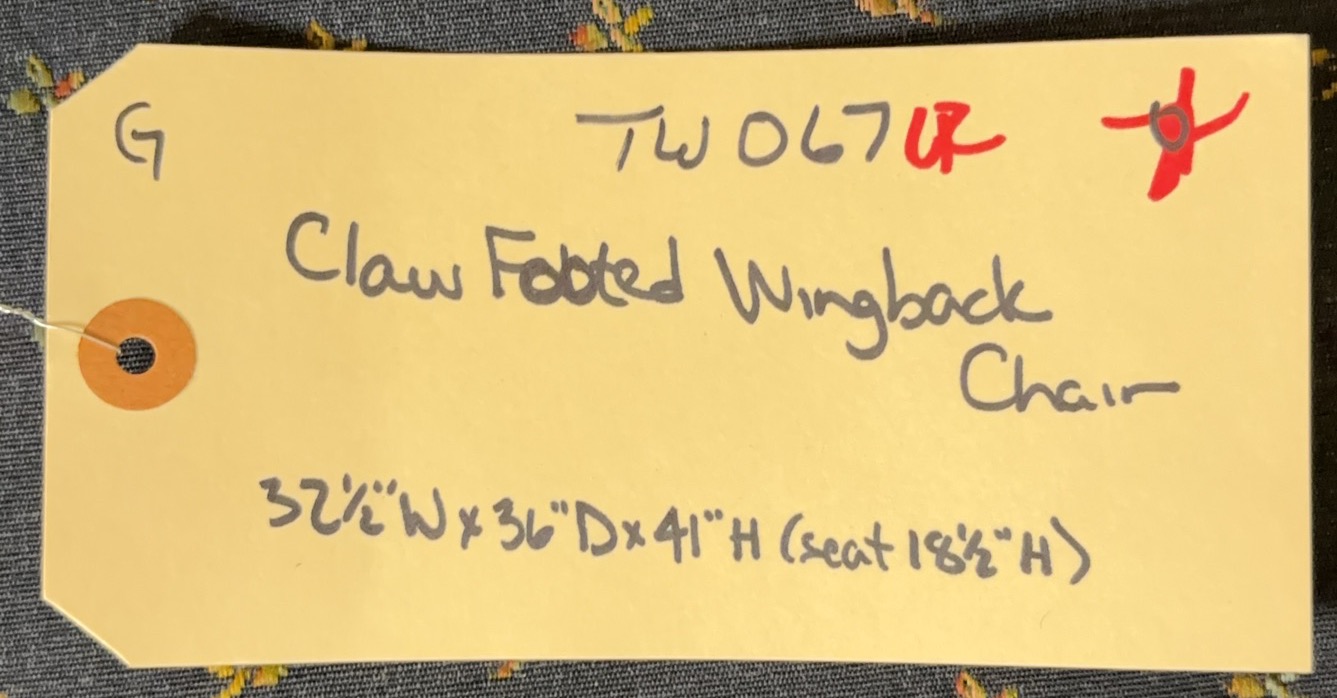 G TW067UR
Claw Footed Wingback
Chair
32½"W x 36"D x 41"H (seat 18½"H)